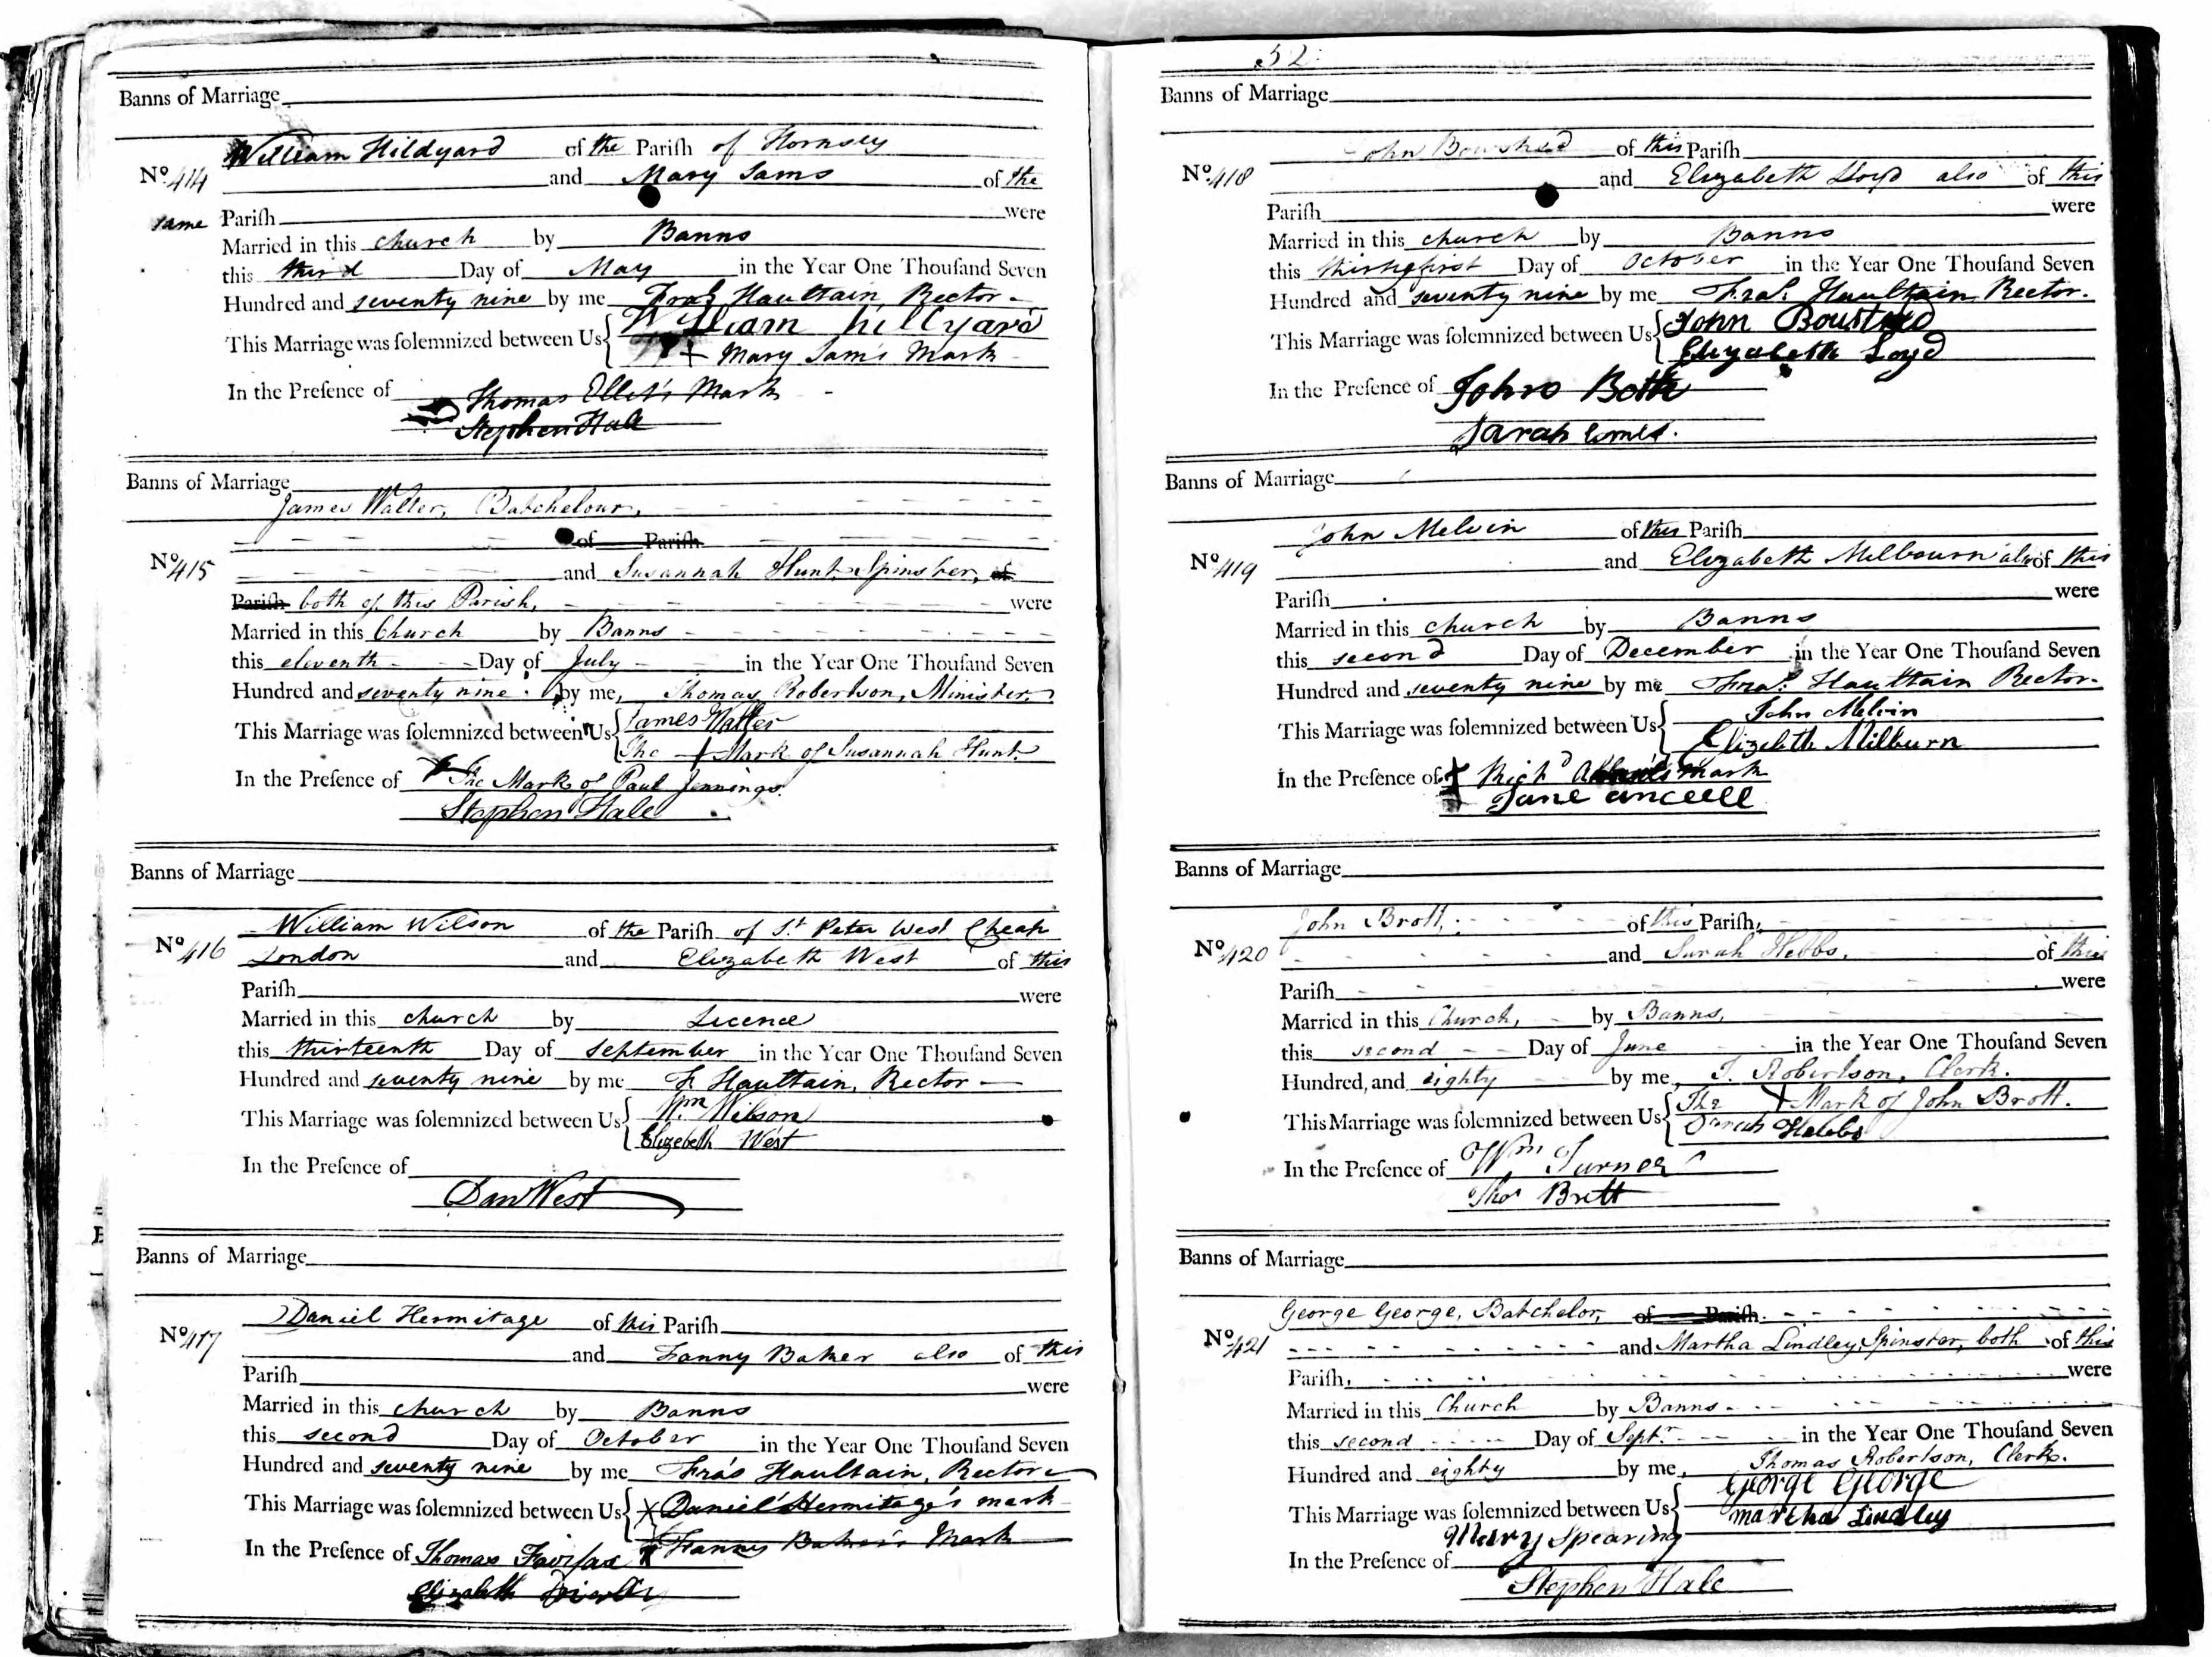 Banns of Marriage
William Hildyard of the Pariſh of Hornsey
No. 414 and Mary Sams of the
same Pariſh were
Married in this church by Banns
this third Day of May in the Year One Thouſand Seven
Hundred and seventy nine by me Fras. Haultain, Rector
This Marriage was ſolemnized between Us William hillyard
+ Mary Sam's Mark
In the Preſence of Thomas Ellis's Mark
Stephen Hale
Banns of Marriage
James Walter, Batchelour,
of Pariſh
No. 415 and Susannah Hunt, Spinster, of
Pariſh both of this Parish, were
Married in this Church by Banns
this eleventh Day of July in the Year One Thouſand Seven
Hundred and seventy nine by me, Thomas Robertson, Minister,
This Marriage was ſolemnized between Us James Walter
The + Mark of Susannah Hunt.
In the Preſence of The Mark of Paul Jennings.
Stephen Hale
Banns of Marriage
William Wilson of the Pariſh of St. Peter West Cheap
No. 416 London and Elizabeth West of this
Pariſh were
Married in this church by Licence
this thirteenth Day of September in the Year One Thouſand Seven
Hundred and seventy nine by me F. Haultain, Rector
This Marriage was ſolemnized between Us Wm Wilson
Elizebeth West
In the Preſence of
Dan West
Banns of Marriage
Daniel Hermitage of this Pariſh
No. 417 and Fanny Baker also of this
Pariſh were
Married in this church by Banns
this second Day of October in the Year One Thouſand Seven
Hundred and seventy nine by me Fras Haultain, Rector
This Marriage was ſolemnized between Us X Daniel Hermitage's mark
Fanny Baker's Mark
In the Preſence of Thomas Fairfax
Elizabeth
52
Banns of Marriage
John Boushed of this Pariſh
No. 418 and Elizabeth Lloyd also of this
Pariſh were
Married in this church by Banns
this thirtyfirst Day of October in the Year One Thouſand Seven
Hundred and seventy nine by me Fras. Haultain, Rector.
This Marriage was ſolemnized between Us John Boustred
Elizabeth Loyd
In the Preſence of John Both
Sarah
Banns of Marriage
John Melvin of this Pariſh
No. 419 and Elizabeth Milbourn also of this
Pariſh were
Married in this church by Banns
this second Day of December in the Year One Thouſand Seven
Hundred and seventy nine by me Fras. Haultain Rector.
This Marriage was ſolemnized between Us John Melvin
Elizebeth Milburn
In the Preſence of + Richd mark
Jane anceell
Banns of Marriage
John Brott, of this Pariſh,
No. 420 and Sarah Hebbs, of this
Pariſh were
Married in this Church, by Banns,
this second Day of June in the Year One Thouſand Seven
Hundred, and eighty by me, T. Robertson, Clerk.
This Marriage was ſolemnized between Us The + Mark of John Brott.
Sarah Hebbs
In the Preſence of Wm Turner
Thos Brett
Banns of Marriage
George George, Batchelor, of Pariſh.
No. 421 and Martha Lindley, Spinster, both of this
Pariſh, were
Married in this Church by Banns
this second Day of Septr. in the Year One Thouſand Seven
Hundred and eighty by me, Thomas Robertson, Clerk.
This Marriage was ſolemnized between Us George George
martha Lindley
Mary Spearing
In the Preſence of
Stephen Hale